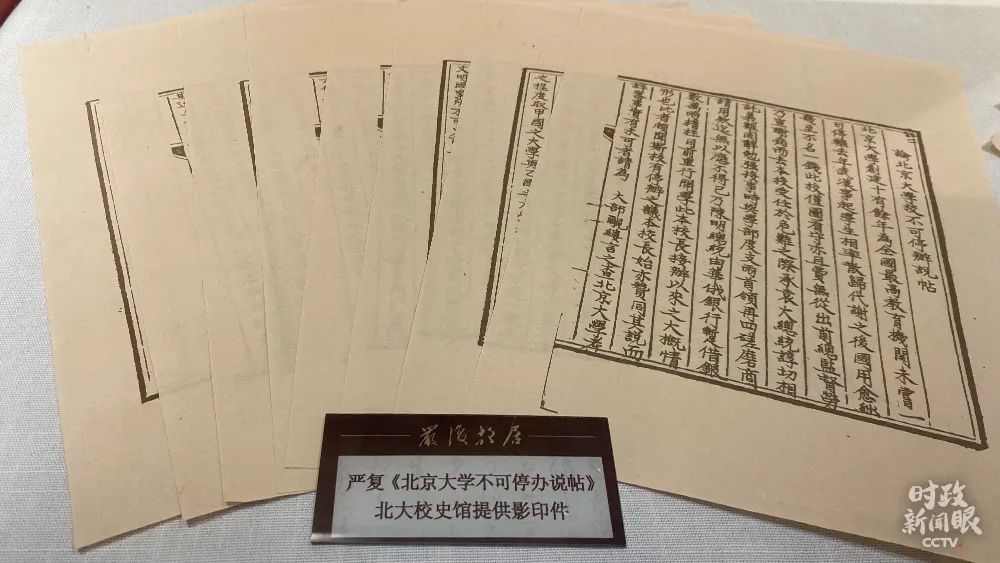 論北京大學校不可停辦說帖
北京大學創建十有餘年為全國最高教育機關未嘗一日
可停轅去年武漢事起學生相率散歸代謝之後國用愈絀
幾至不名一錢此校僅圖看守亦且費無從出前總監督勞
乃宣謝病而去本校受任於危難之際承袁大總統諄切相
託義難固辭勉強接事時與學部度支兩首領再四磋磨商
請用款迄無以應不得已乃陳明總統由華俄銀行暫定借銀
數萬兩接於月前重行開學此本校長接辦以來之大概情
形也比者頗聞斯校有停辦之議本校長始亦贊同其說而
詳審事實有未可者請為 大部覼縷言之查北京大學考
之程度取甲國之大學與乙國
文明國
嚴復故居
严复《北京大学不可停办说帖》
北大校史馆提供影印件
时政
新闻眼
CCTV